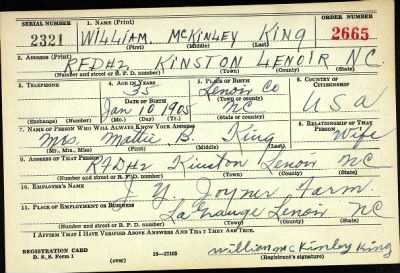 SERIAL NUMBER 1. NAME (Print) ORDER NUMBER
2321 WILLIAM. McKINLEY KING 2665
(First) (Middle) (Last)
2. ADDRESS (Print)
RFD#2 KINSTON LENOIR N.C.
(Number and street or R. F. D. number) (Town) (County) (State)
3. TELEPHONE 4. AGE IN YEARS 5. PLACE OF BIRTH 6. COUNTRY OF CITIZENSHIP
35 Lenoir Co
DATE OF BIRTH (Town or county)
Jan 10 1905 NC USA
(Exchange) (Number) (Mo.) (Day) (Yr.) (State or country)
7. NAME OF PERSON WHO WILL ALWAYS KNOW YOUR ADDRESS 8. RELATIONSHIP OF THAT PERSON
Mrs. Mattie B. King Wife
(Mr., Mrs., Miss) (First) (Middle) (Last)
9. ADDRESS OF THAT PERSON
RFD#2 Kinston Lenoir NC
(Number and street or R. F. D. number) (Town) (County) (State)
10. EMPLOYER'S NAME
J. Y. Joyner Farm.
11. PLACE OF EMPLOYMENT OR BUSINESS
LaGrange Lenoir NC
(Number and street or R. F. D. number) (Town) (County) (State)
I AFFIRM THAT I HAVE VERIFIED ABOVE ANSWERS AND THAT THEY ARE TRUE.
REGISTRATION CARD
D. S. S. Form 1 (over) 16-17105 William McKinley King
(Registrant's signature)